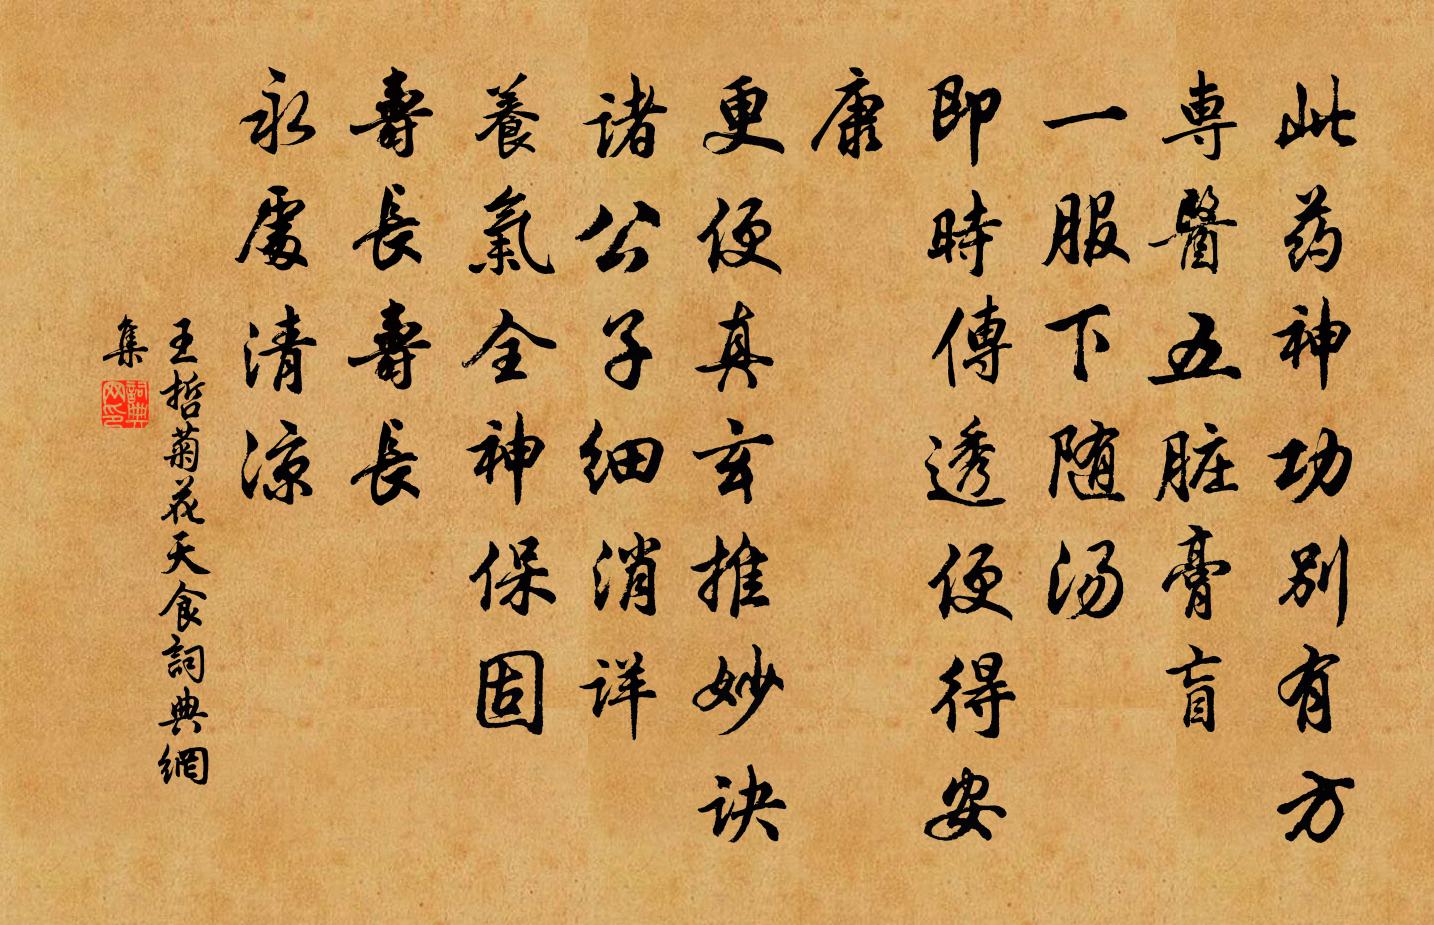 此药神功别有方
専醫五脏膏盲
一服下随汤
即時傳透便得安
康
更便真玄推妙訣
诸公子细消详
養氣全神保固
壽長壽長
永處清涼
王哲菊花天食詞典網
集
詞典网印